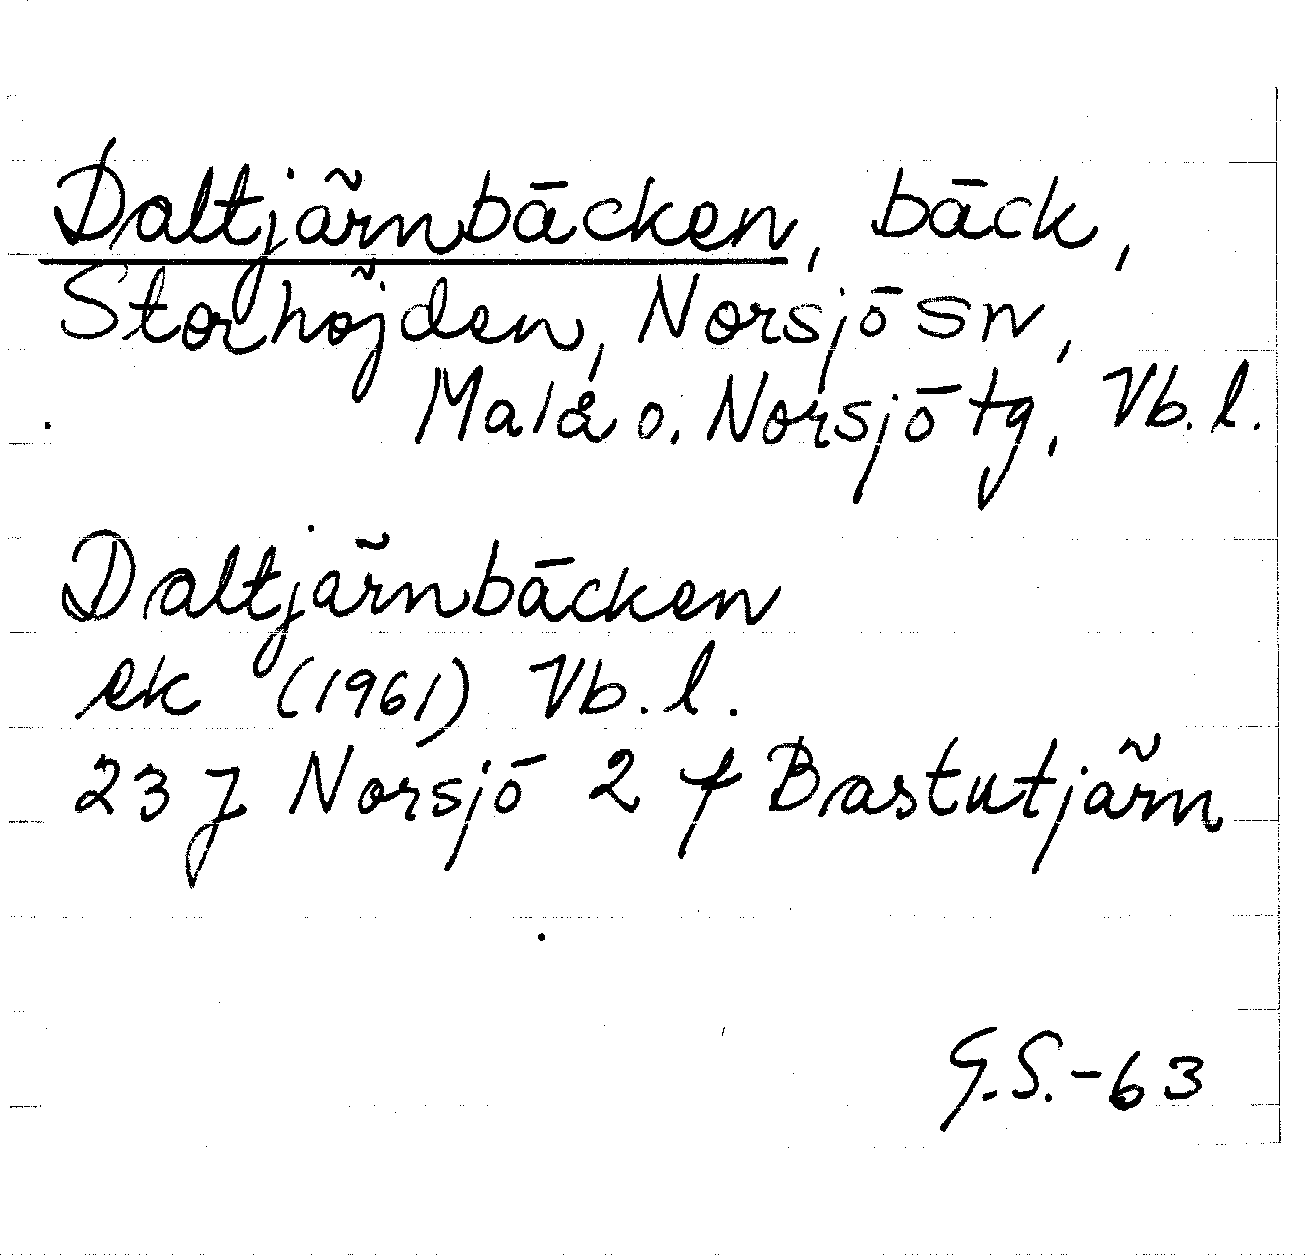 Daltjärnbäcken, bäck,
Storhöjden, Norsjö sn,
Malå o. Norsjö tg, Vb. l.
Daltjärnbäcken
ek (1961) Vb. l.
23 J Norsjö 2 f Bastutjärn
G.S.-63